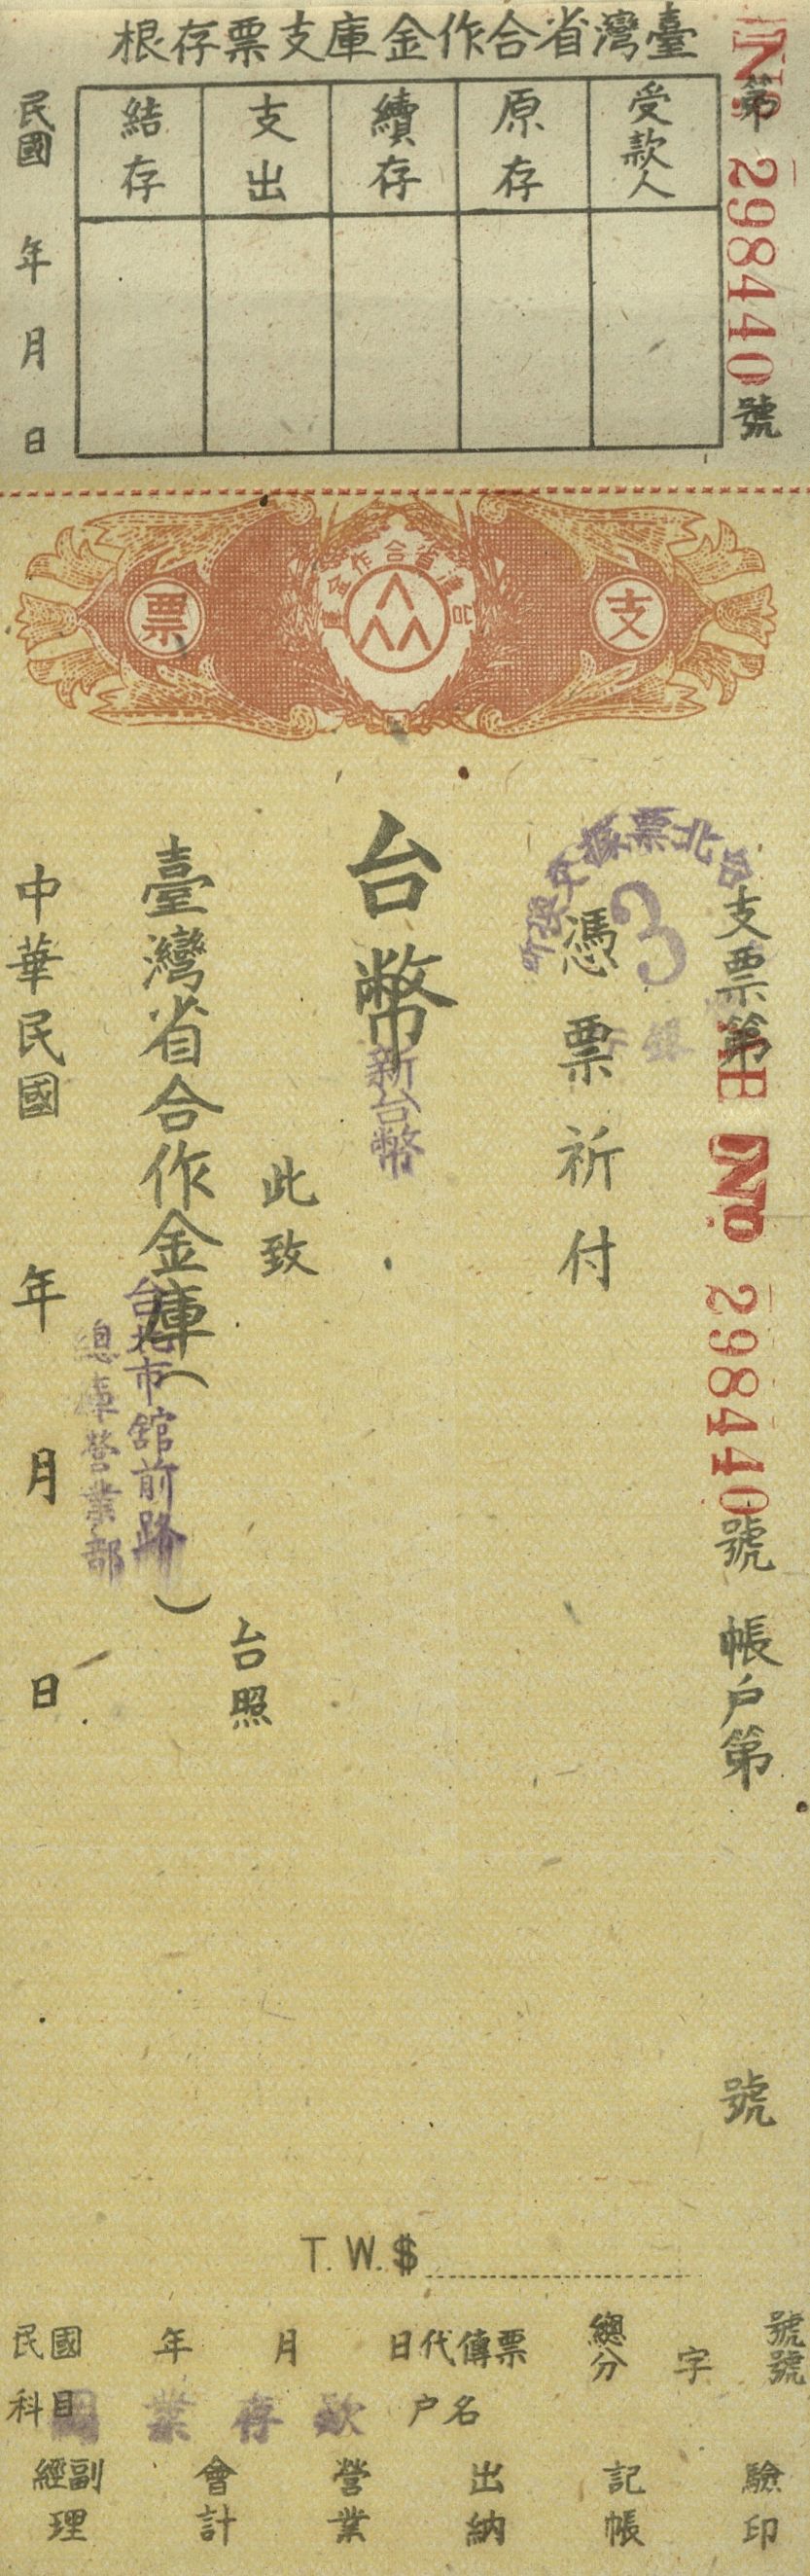 臺灣省合作金庫支票存根
第 No 298440 號
受款人
原存
續存
支出
結存
民國 年 月 日
台灣省合作金庫
支票
支票第 No 298440 號 帳戶第 號
台北票據交換所
3
憑票祈付
台幣
新台幣
此致
臺灣省合作金庫( ) 台照
台北市舘前路
總庫營業部
中華民國 年 月 日
T.W.$
民國 年 月 日代傳票 總分 字 號號
科目 業存款 戶名
經副理 會計 營業 出納 記帳 驗印